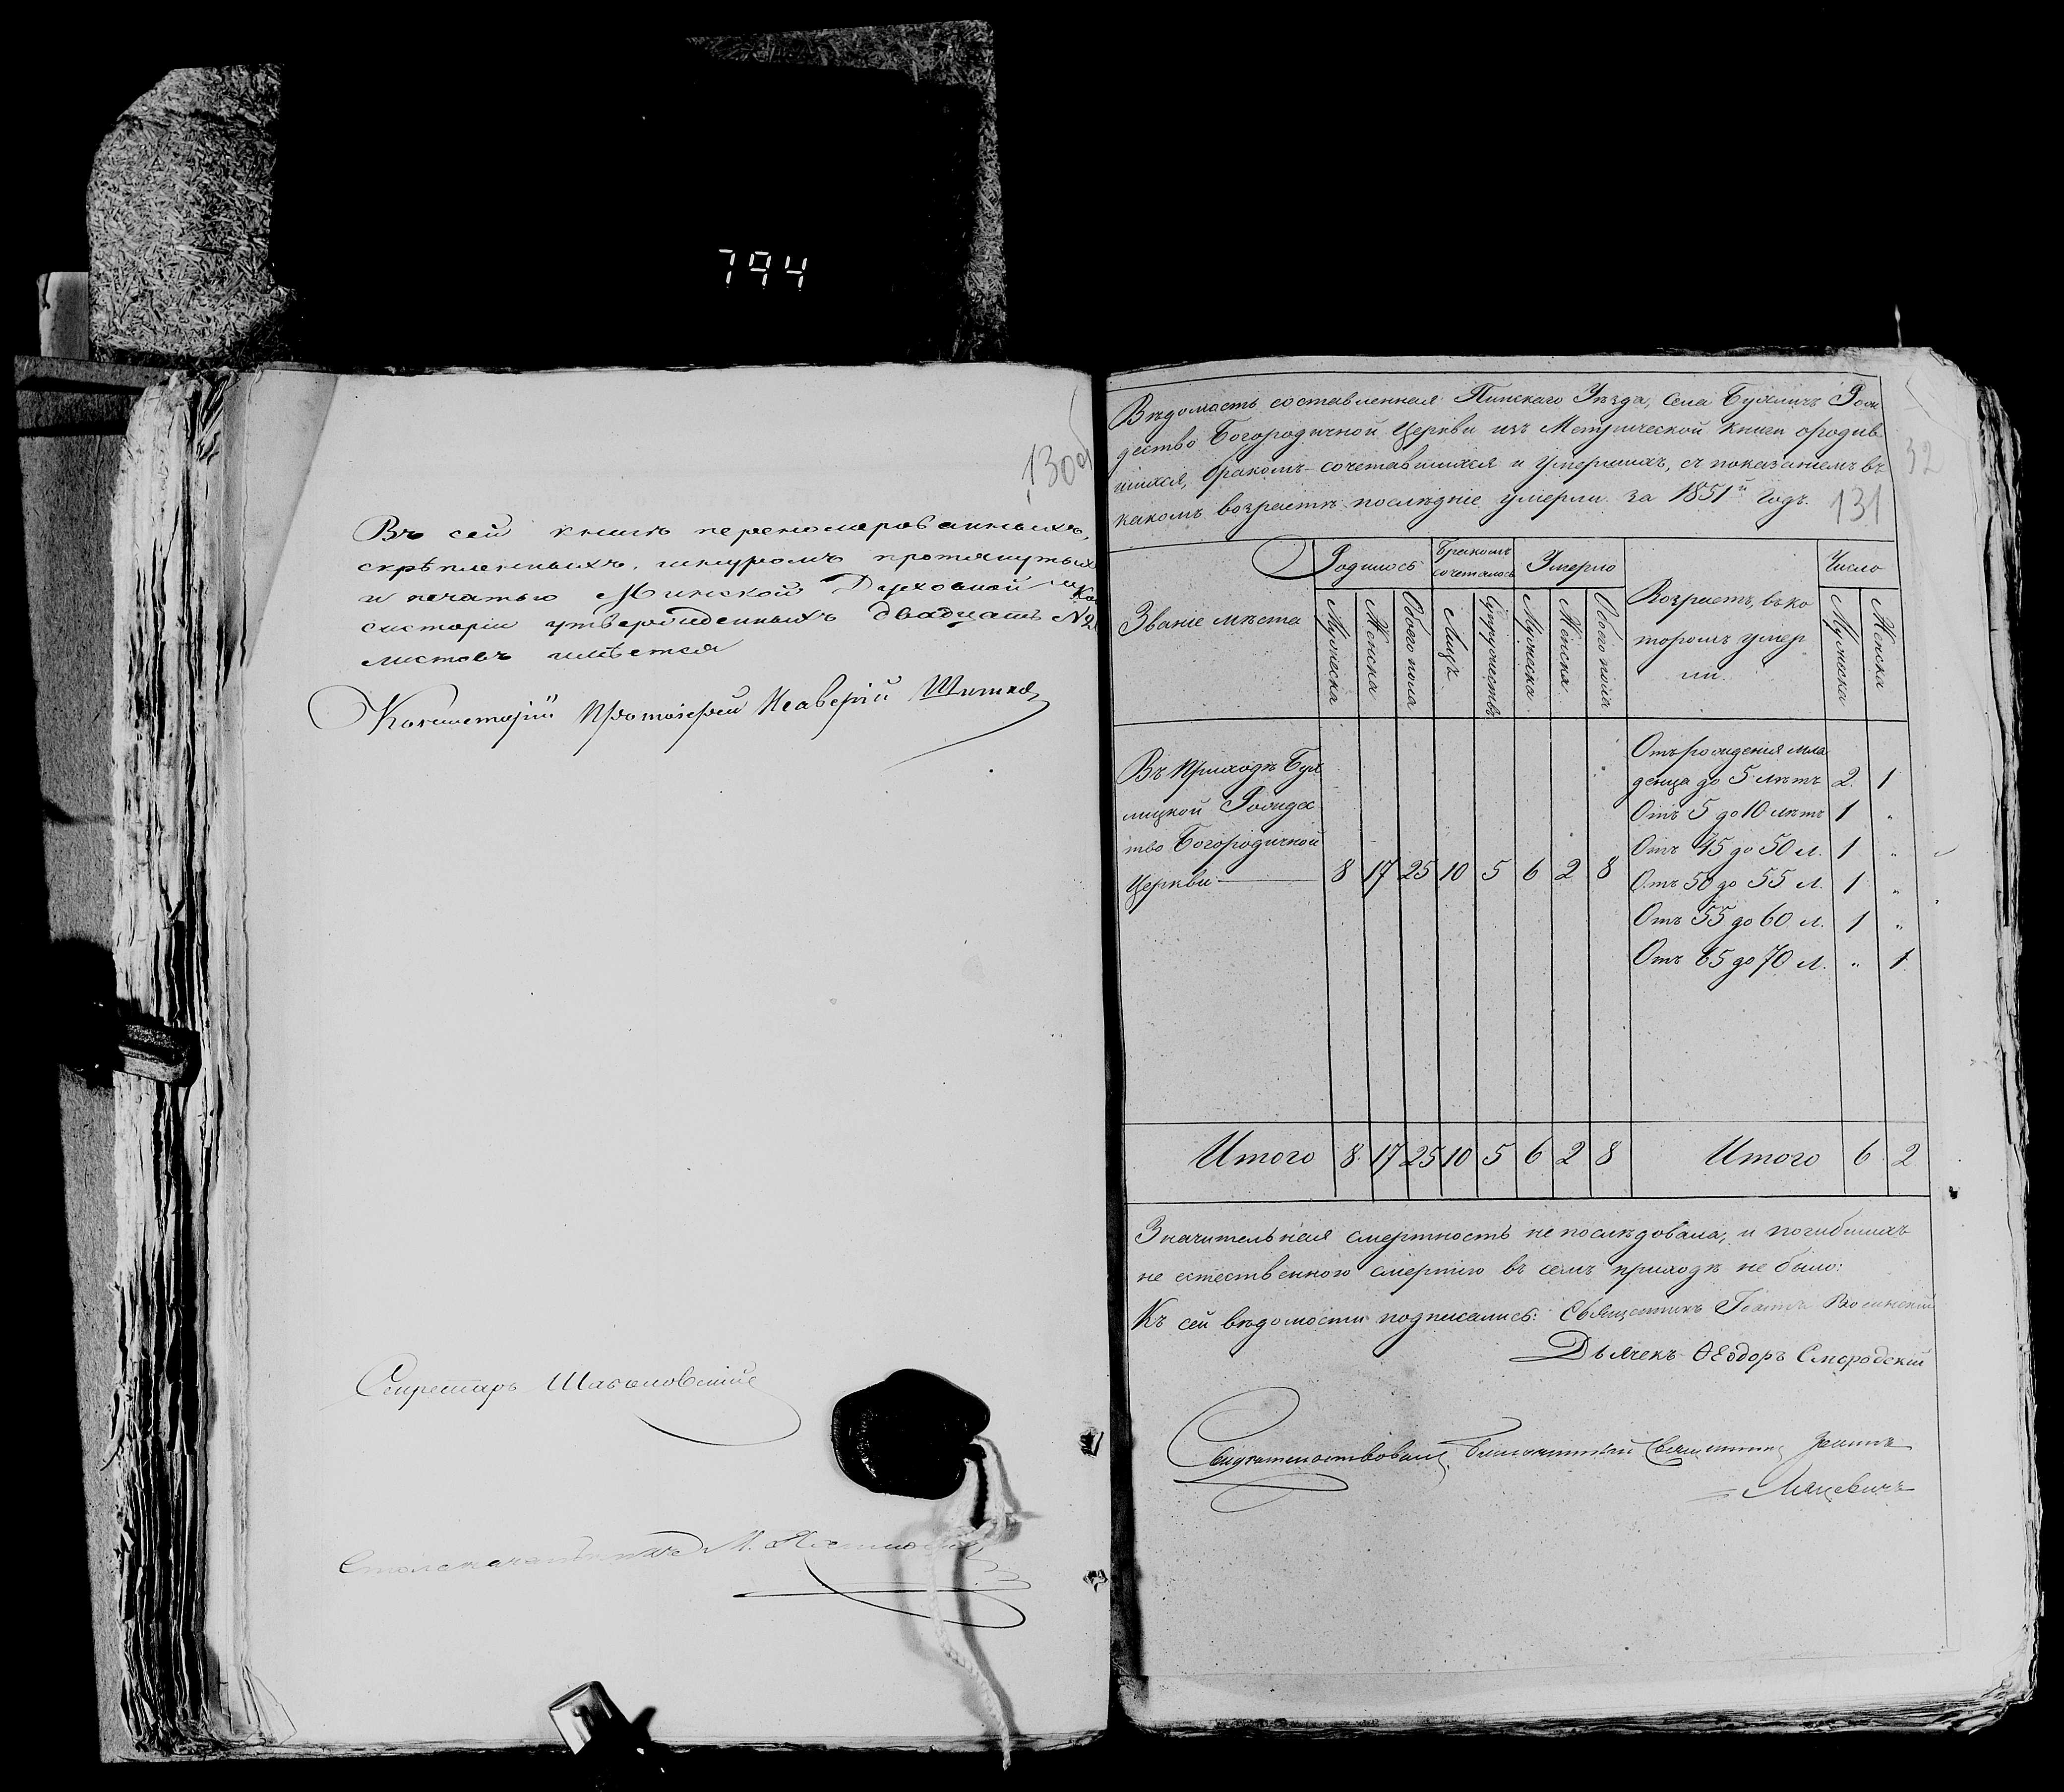 794
130 об
Въ сей книгѣ перенумерованныхъ,
скрѣпленныхъ, шнуромъ протянутыхъ
и печатью Минской Духовной Кон
систоріи утвержденныхъ двадцать №20
листовъ имѣется
Консисторій Протоіерей Ксаверій
Секретарь
Столоначальникъ М.
Вѣдомость составленная Пинскаго Уѣзда, Села Бухличъ Рож
дество Богородичной Церкви изъ Метрической Книги о родив
шихся, бракомъ-сочетавшихся и Умершихъ, съ показаніемъ въ
какомъ возрастѣ послѣдніе умерли за 1851й Годъ.
32
131
Званіе мѣста
Родилось
Бракомъ сочеталось
Умерло
Возрастъ, въ ко
торомъ умер
ли.
Число
Мужеска
Женска
Обоего пола
Лицъ
Супружествъ
Мужеска
Женска
Обоего пола
Мужеска
Женска
Въ Приходѣ Бух
лицкой Рождес
тво Богородичной
Церкви 8 17 25 10 5 6 2 8
Отъ рожденія мла
денца до 5 лѣтъ 2. 1
Отъ 5 до 10 лѣтъ 1 "
Отъ 45 до 50 л. 1 "
Отъ 50 до 55 л. 1 "
Отъ 55 до 60 л. 1 "
Отъ 65 до 70 л. " 1.
Итого 8 17 25 10 5 6 2 8 Итого 6 2
Значительная смертность не послѣдовала, и погибшихъ
не естественною смертію въ семъ приходѣ не было:
Къ сей вѣдомости подписались: Священникъ Іоаннъ
Дьячекъ Ѳеодоръ Смородскій
Свидѣтельствовалъ Благочинный Священникъ Іоаннъ